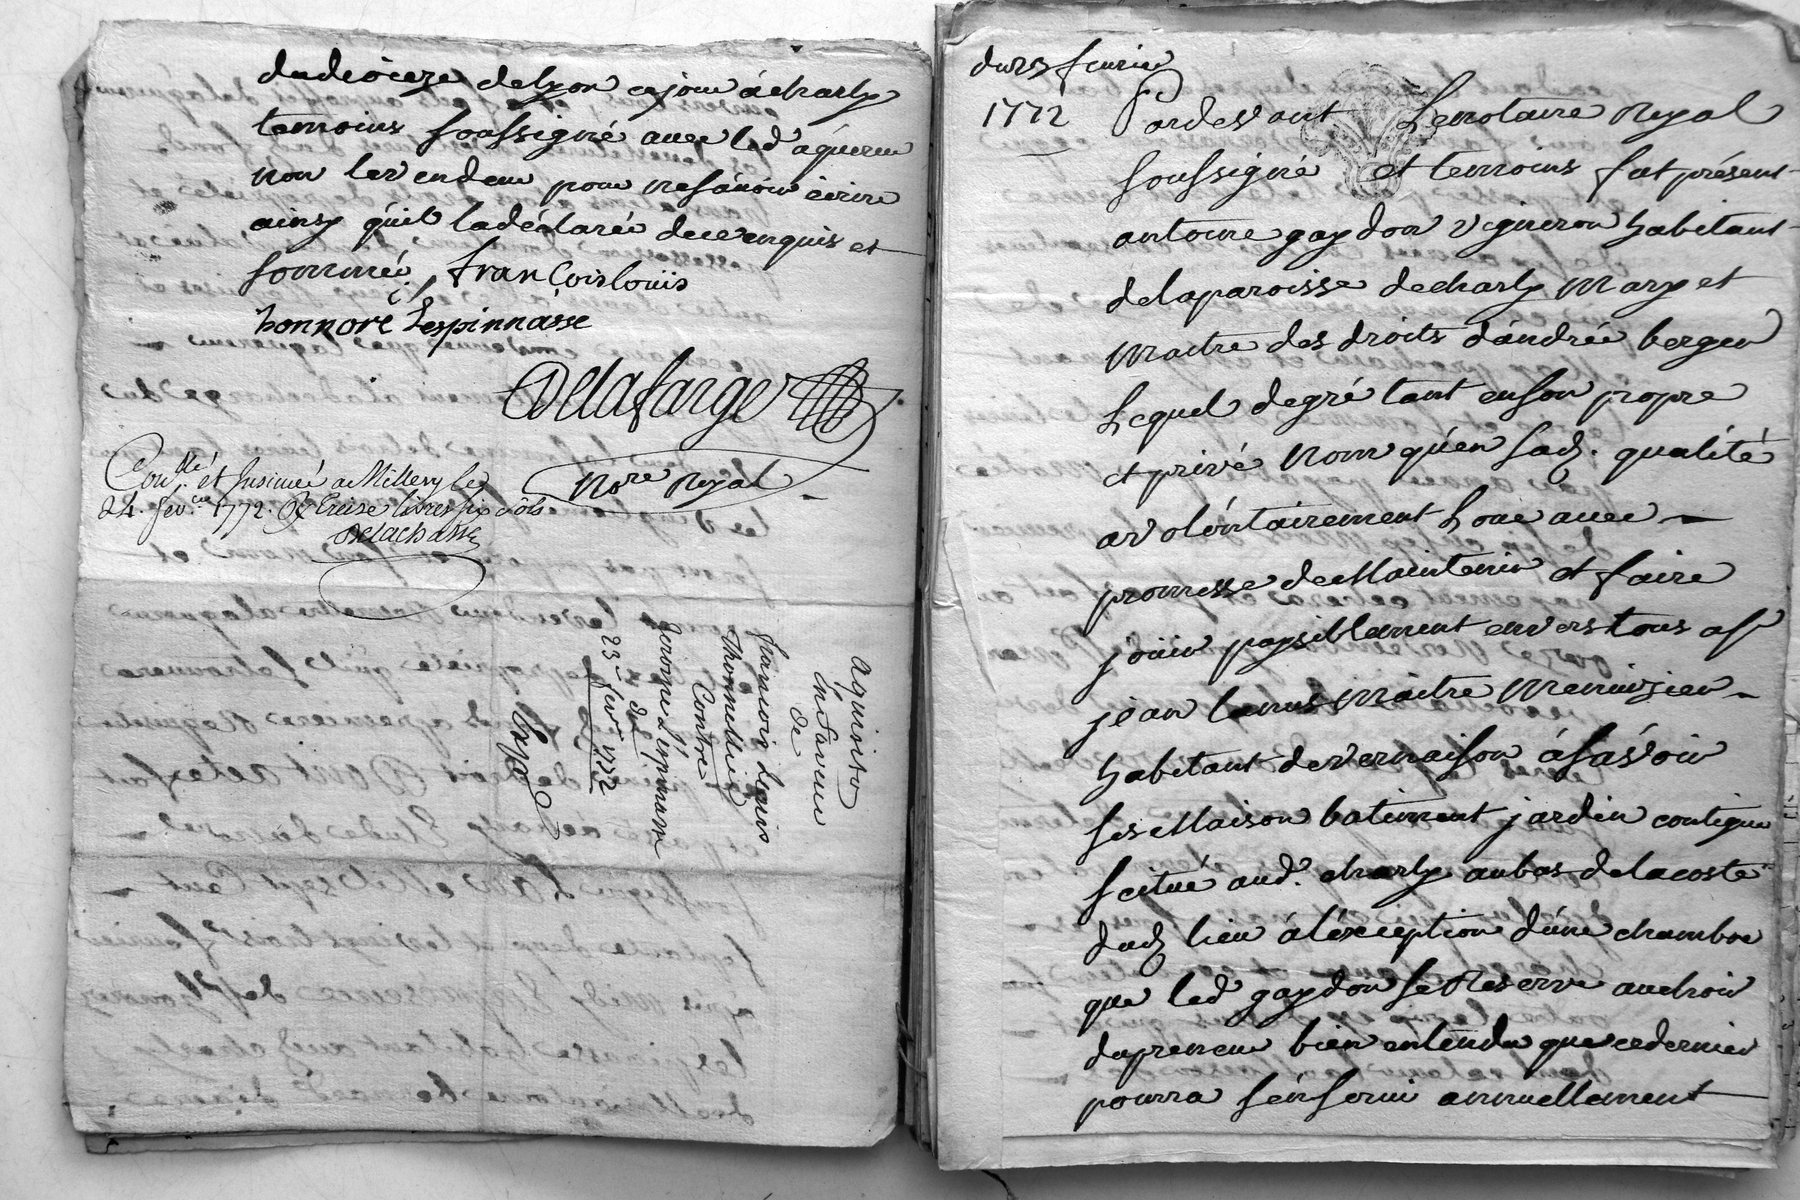 dudioceze delyon cejour à charly
temoins soussigné avec led aquereur
non levendeur pour ne sávoir écrire
ainsy quil ladéclaré dece enquis et
sommé, françois louis
honnoré Lespinnasse
Delafarge
Nore Royal
Conllé. et Insinué a Millery le
24. fevrier 1772. R Treise livres six sols
Delachasse
Aquisito
En faveur
de
francois Louis
Thomellier
Contre
Jerome Lespinasse
du
23e fevr 1772
Exp
du 25 fevrier
1772
Pardevant Lenotaire Royal
soussigné et temoins fut présent
antoine gaydon vigneron habitant
delaparoisse decharly Mary et
Maitre des droits dándrée berger
Lequel degré tant enson propre
et privé Nom quén sad. qualité
avolóntairement Loué avec
promesse de Maintenir et faire
jouir paysiblement envers tous as
jean Maitre Menuizier
habitant devernaison ásávoir
ses Maison batiment jardin contigue
scitué aud. charly aubas delacoste
dud lieu álexception dúne chambre
que led gaydon se Réserve auchoix
dupreneur bien entendu que cedernier
pourra sén servir annuellement